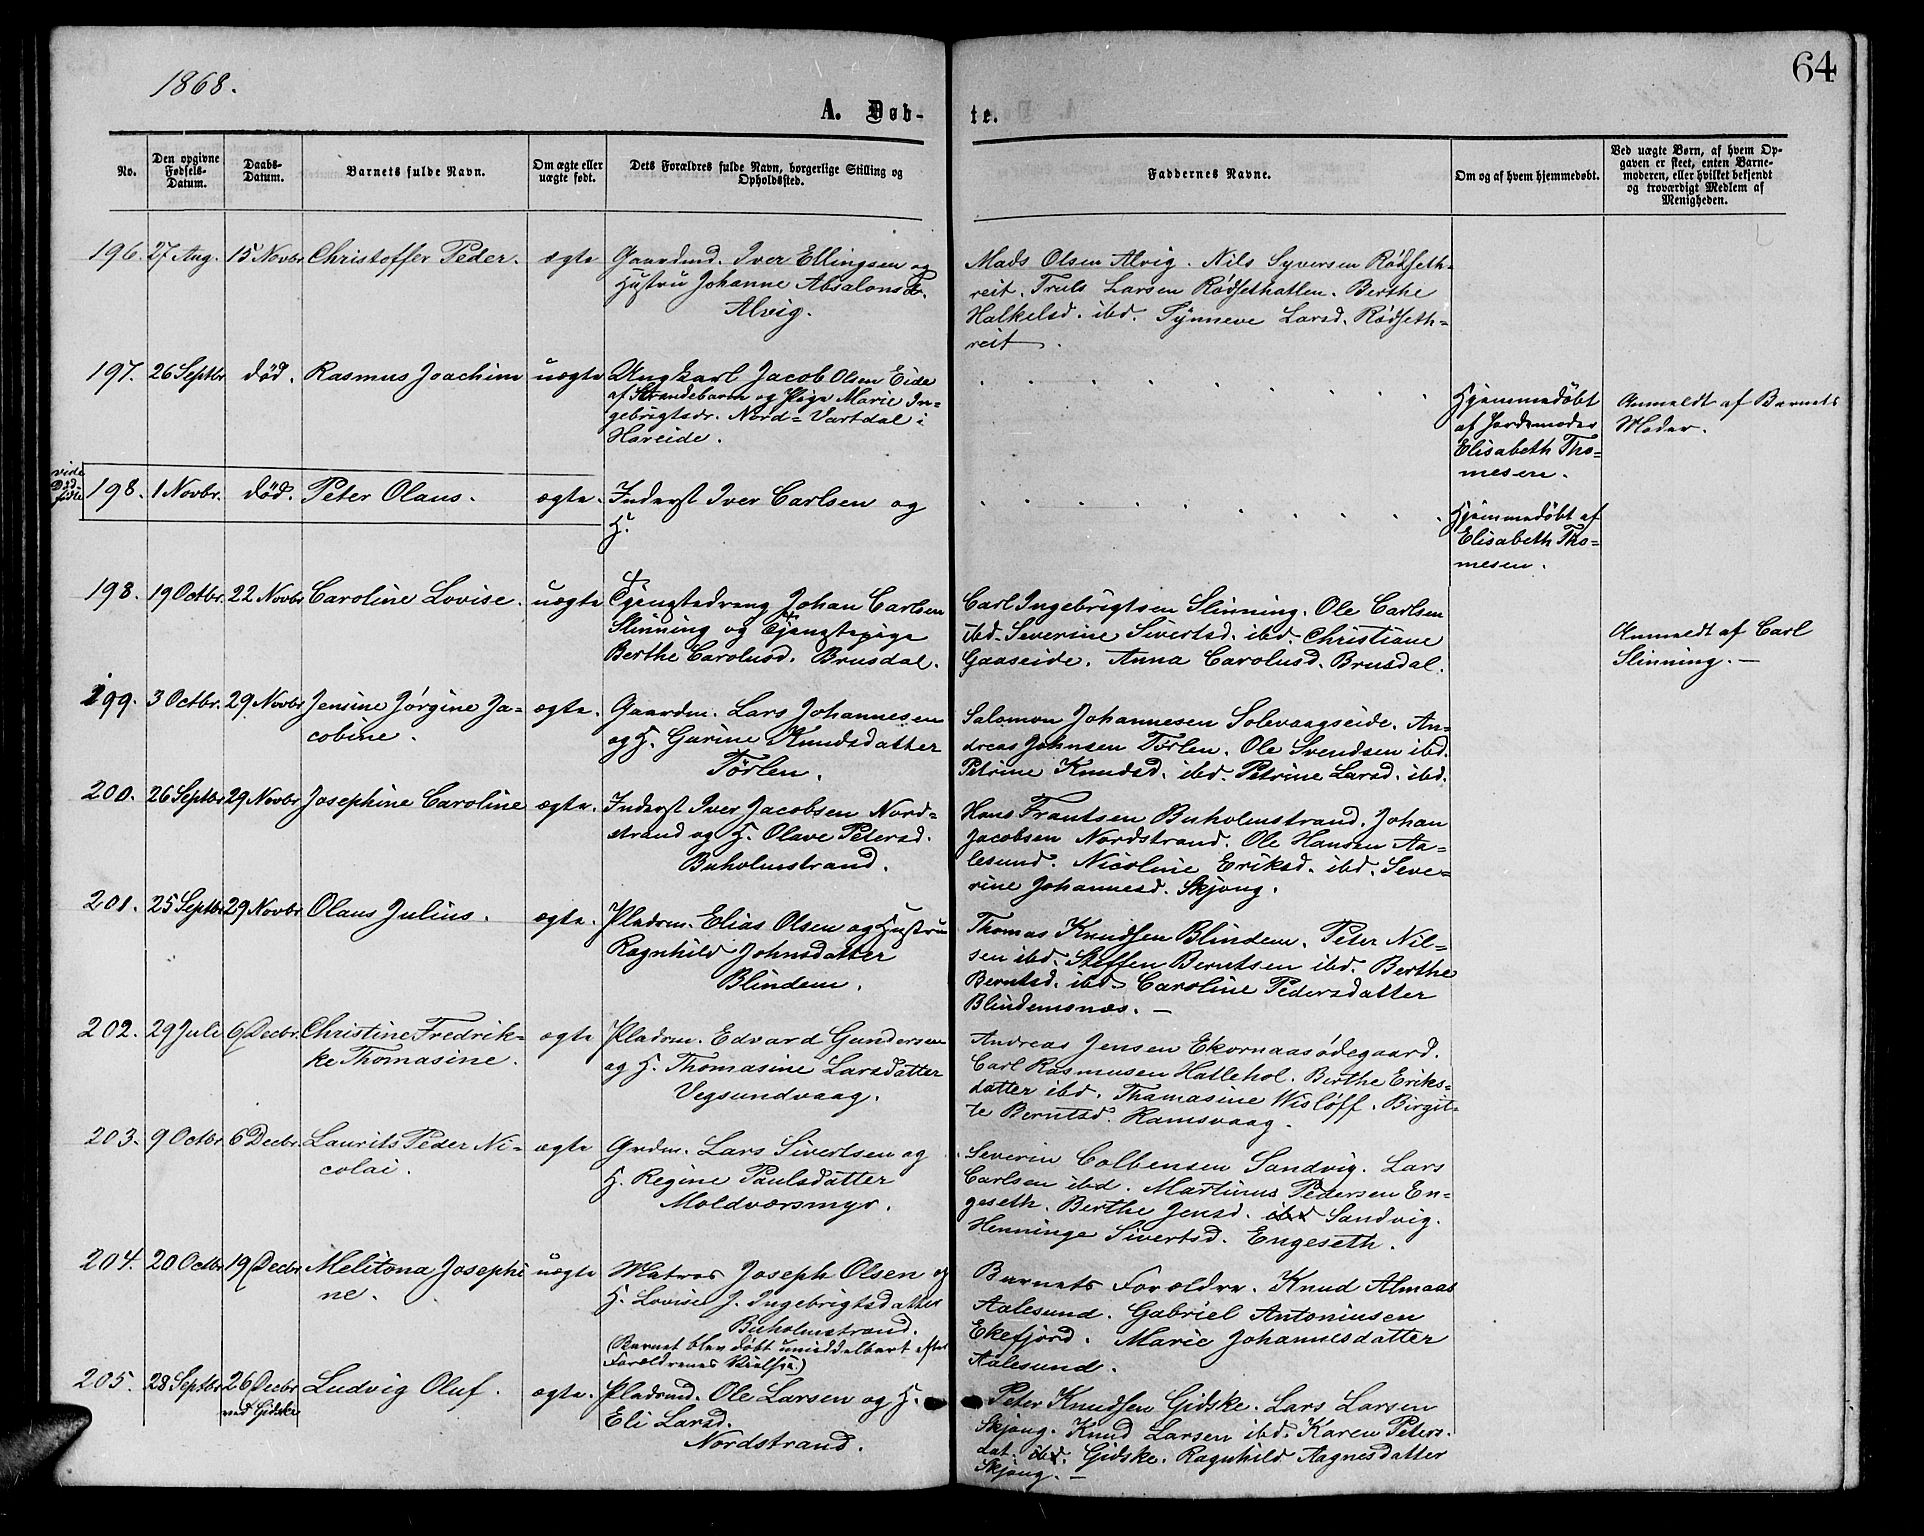 1868.
64
A. Døb-
te.
No.
Den opgivne Fødsels-Datum.
Daabs-Datum.
Barnets fulde Navn.
Om ægte eller uægte født.
Dets Forældres fulde Navn, borgerlige Stilling og Opholdssted.
Faddernes Navne.
Om og af hvem hjemmedøbt.
Ved uægte Børn, af hvem Opgaven er skeet, enten Barnemoderen, eller hvilket bekjendt og troværdigt Medlem af Menigheden.
196. 27 Aug. 15 Novbr. Christoffer Peder. ægte
Gaardmd. Iver Ellingsen og
Hustru Johanne Absalonsd.
Alvig.
Mads Olsen Alvig. Nils Syversen Rødseth-
reit. Truls Larsen Rødsethatlen. Berthe
Halkelsd. ibd. Synneve Larsd. Rødseth=
reit.
197. 26 Septbr. død. Rasmus Joachim uægte
Ungkarl Jacob Olsen Eide
af Strandebarm og Pige Marie In=
gebrigtsdr. Nord=Vartdal i
Hareide.
Hjemmedøbt
af Jordemoder
Elisabeth Tho=
mesen.
Anmeldt af Barnets
Moder.
vide
198. 1 Novbr. død. Peter Olaus. ægte.
Inderst Iver Carlsen og
H.
Hjemmedøbt af
Elisabeth Tho=
mesen.
198. 19 Octbr. 22 Novbr. Caroline Lovise. uægte
Tjenestedreng Johan Carlsen
Slinning og Tjenestepige
Berthe Carolusd. Brusdal.
Carl Ingebrigtsen Slinning. Ole Carlsen
ibd. Severine Sivertsd. ibd. Christiane
Gaaseide. Anna Carolusd. Brusdal.
Anmeldt af Carl
Slinning. —
199. 3 Octbr. 29 Novbr. Jensine Jørgine Ja=
cobine.
ægte.
Gaardm. Lars Johannesen
og H. Gurine Knudsdatter
Tørlen.
Salomon Johannesen Solevaagseide. An=
dreas Johnsen Tørlen. Ole Svendsen ibd.
Petrine Knudsd. ibd. Petrine Larsd. ibd.
200. 26 Septbr. 29 Novbr. Josephine Caroline ægte.
Inderst Iver Jacobsen Nord=
strand og H. Olave Petersd.
Buholmstrand.
Hans Frantsen Buholmstrand. Johan
Jacobsen Nordstrand. Ole Hansen Aa=
lesund. Nicoline Eriksd. ibd. Seve=
rine Johannesd. Skjong.
201. 25 Septbr. 29 Novbr. Olaus Julius. ægte.
Pladsm. Elias Olsen og Hustru
Ragnhild Johnsdatter
Blindem.
Thomas Knudsen Blindem. Peter Nil=
sen ibd. Steffen Berntsen ibd. Berthe
Berntsd. ibd. Caroline Pedersdatter
Blindemsnæs. —
202. 29 Juli 6 Decbr. Christine Fredrik=
ke Thomasine.
ægte
Pladsm. Edvard Gundersen
og H. Thomasine Larsdatter
Vegsundvaag.
Andreas Jensen Ekornaasødegaard.
Carl Rasmusen Hatlehol. Berthe Eriks=
datter ibd. Thamasine Wisløff. Birgit=
te Berntsd. Ramsvaag.
203. 9 Octbr. 6 Decbr. Laurits Peder Ni=
colai.
ægte
Grdm. Lars Sivertsen og
H. Regine Paulsdatter
Moldværsmyr.
Severin Colbensen Sandvig. Lars
Carlsen ibd. Martinus Pedersen En=
geseth. Berthe Jensd. ibd Sandvig.
Henninge Sivertsd. Engeseth.
204. 20 Octbr. 19 Decbr. Melitona Josephi
ne.
uægte
Matros Joseph Olsen og
H. Lovise J. Ingebrigtsdatter
Buholmstrand.
(Barnet blev døbt umiddelbart efter
Forældrenes Vielse.)
Barnets Forældre. Knud Almaas
Aalesund. Gabriel Antoniusen
Ekefjord. Marie Johannesdatter
Aalesund.
205. 28 Septbr. 26 Decbr.
ved Gidske
Ludvig Oluf. ægte.
Pladsmd. Ole Larsen og H.
Eli Larsd.
Nordstrand.
Peter Knudsen Gidske. Lars Larsen
Skjong. Knud Larsen ibd. Karen Peters.
dat. ibd. Gidske. Ragnhild Aagnesdatter
Skjong. —